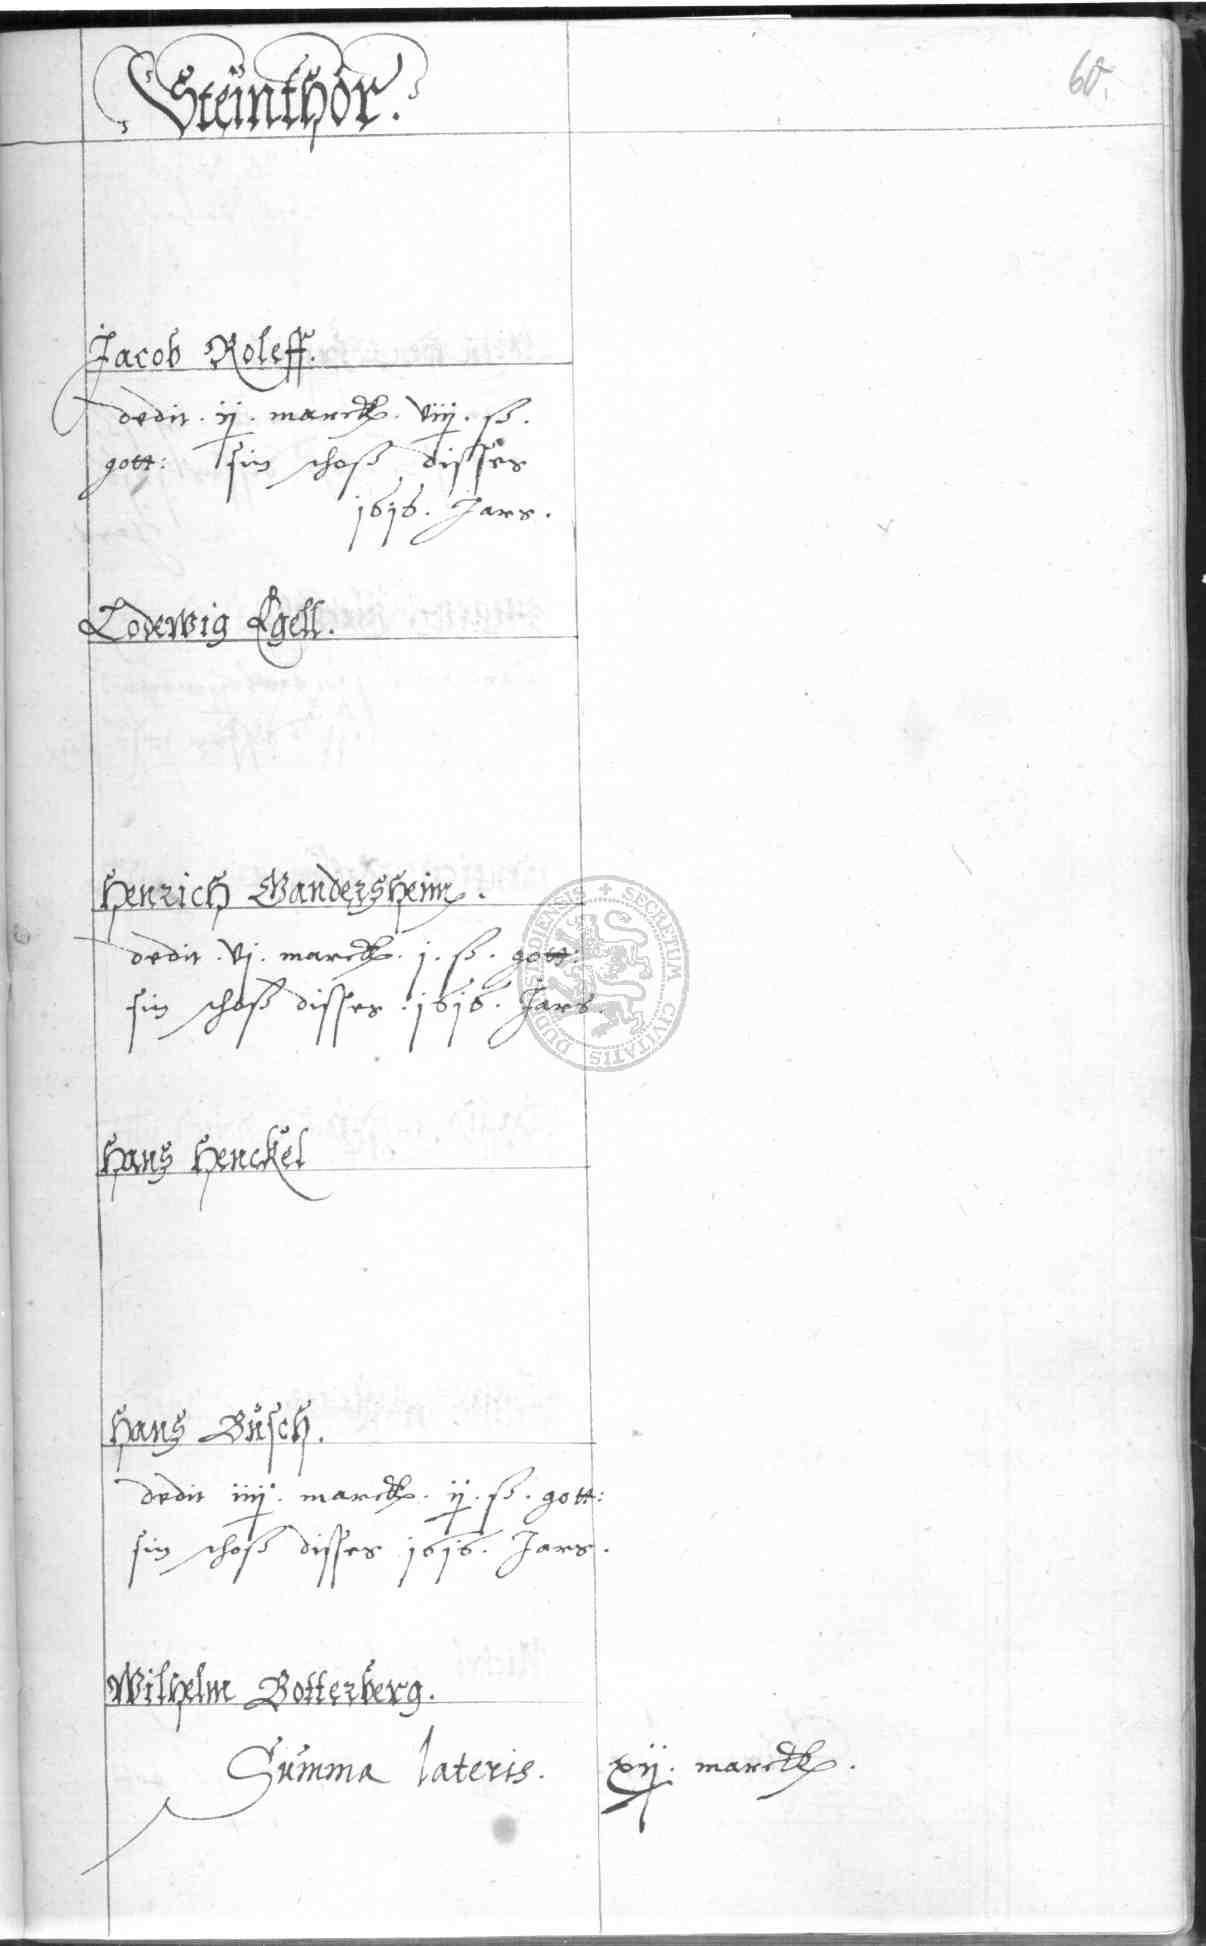 Steinthor.
60.
Jacob Roleff.
dedit. ij. marck. viij. ß.
gott: sin schoß disses
1616. Jars.
Lodewig Egell.
Henrich Gandersheim.
dedit. vj. marck. j. ß. gott:
sin schoß disses. 1616. Jars.
Hans Henckel
Hans Büsch.
dedit iiij. marck. ij. ß. gott:
sin schoß disses 1616. Jars.
Wilhelm Botterberg.
Summa lateris. xij. marck.
SECRETUM CIVITATIS